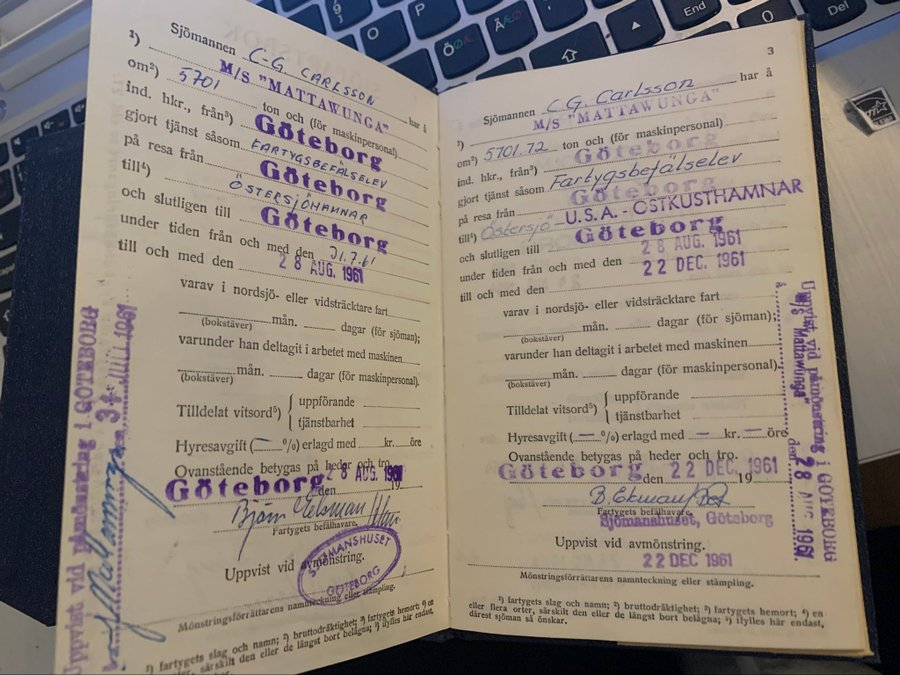 Sjömannen C-G. CARLSSON
¹) M/S "MATTAWUNGA" har å
om²) 5701 ton och (för maskinpersonal)
ind. hkr., från³) Göteborg
gjort tjänst såsom FARTYGSBEFÄLSELEV
på resa från Göteborg
till⁴) ÖSTERSJÖHAMNAR
och slutligen till Göteborg
under tiden från och med den 31.7.61
till och med den 28 AUG. 1961
varav i nordsjö- eller vidsträcktare fart
mån. dagar (för sjöman);
(bokstäver)
varunder han deltagit i arbetet med maskinen
mån. dagar (för maskinpersonal).
(bokstäver)
Tilldelat vitsord⁵) { uppförande
tjänstbarhet
Hyresavgift (— %) erlagd med kr. öre
Ovanstående betygas på heder och tro.
Göteborg den 28 AUG. 1961 19
Björn Ekman
Fartygets befälhavare.
SJÖMANSHUSET
GÖTEBORG
Uppvist vid avmönstring.
Mönstringsförrättarens namnteckning eller stämpling.
¹) fartygets slag och namn; ²) bruttodräktighet; ³) fartygets hemort; ⁴) en
eller flera orter, särskilt den eller de längst bort belägna; ⁵) ifylles här endast,
Uppvist vid påmönstring i GÖTEBORG
3
Sjömannen C.G. Carlsson
¹) M/S "MATTAWUNGA" har å
om²) 5701.72 ton och (för maskinpersonal)
ind. hkr., från³) Göteborg
gjort tjänst såsom Fartygsbefälselev
på resa från Göteborg
till⁴) Östersjö - U.S.A. - OSTKUSTHAMNAR
och slutligen till Göteborg
under tiden från och med den 28 AUG. 1961
till och med den 22 DEC. 1961
varav i nordsjö- eller vidsträcktare fart
mån. dagar (för sjöman);
(bokstäver)
varunder han deltagit i arbetet med maskinen
mån. dagar (för maskinpersonal).
(bokstäver)
Tilldelat vitsord⁵) { uppförande
tjänstbarhet
Hyresavgift (— %) erlagd med — kr. — öre
Ovanstående betygas på heder och tro.
Göteborg den 22 DEC. 1961 19
B. Ekman
Fartygets befälhavare.
Sjömanshuset, Göteborg
Uppvist vid avmönstring.
22 DEC 1961
Mönstringsförrättarens namnteckning eller stämpling.
¹) fartygets slag och namn; ²) bruttodräktighet; ³) fartygets hemort; ⁴) en
eller flera orter, särskilt den eller de längst bort belägna; ⁵) ifylles här endast,
därest sjöman så önskar.
Uppvist vid påmönstring i GÖTEBORG
å M/S "Mattawunga" den 28 AUG 1961
End